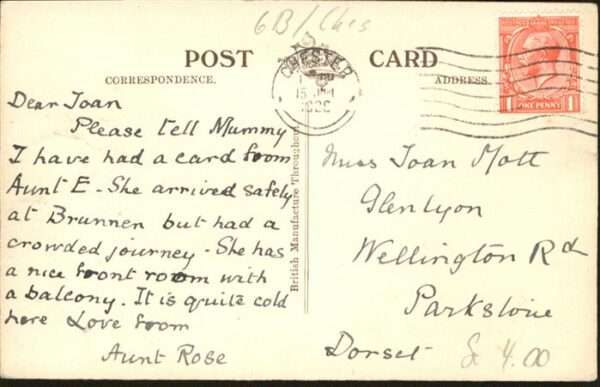 6B/Ches
POST CARD
CORRESPONDENCE.
ADDRESS.
CHESTER
ONE PENNY
Dear Joan
Please tell Mummy
I have had a card from
Aunt E - She arrived safely
at Brunnen but had a
crowded journey - She has
a nice front room with
a balcony. It is quite cold
here Love from
Aunt Rose
British Manufacture Throughout
Miss Joan Mott
Glenlyon
Wellington Rd
Parkstone
Dorset
4.00